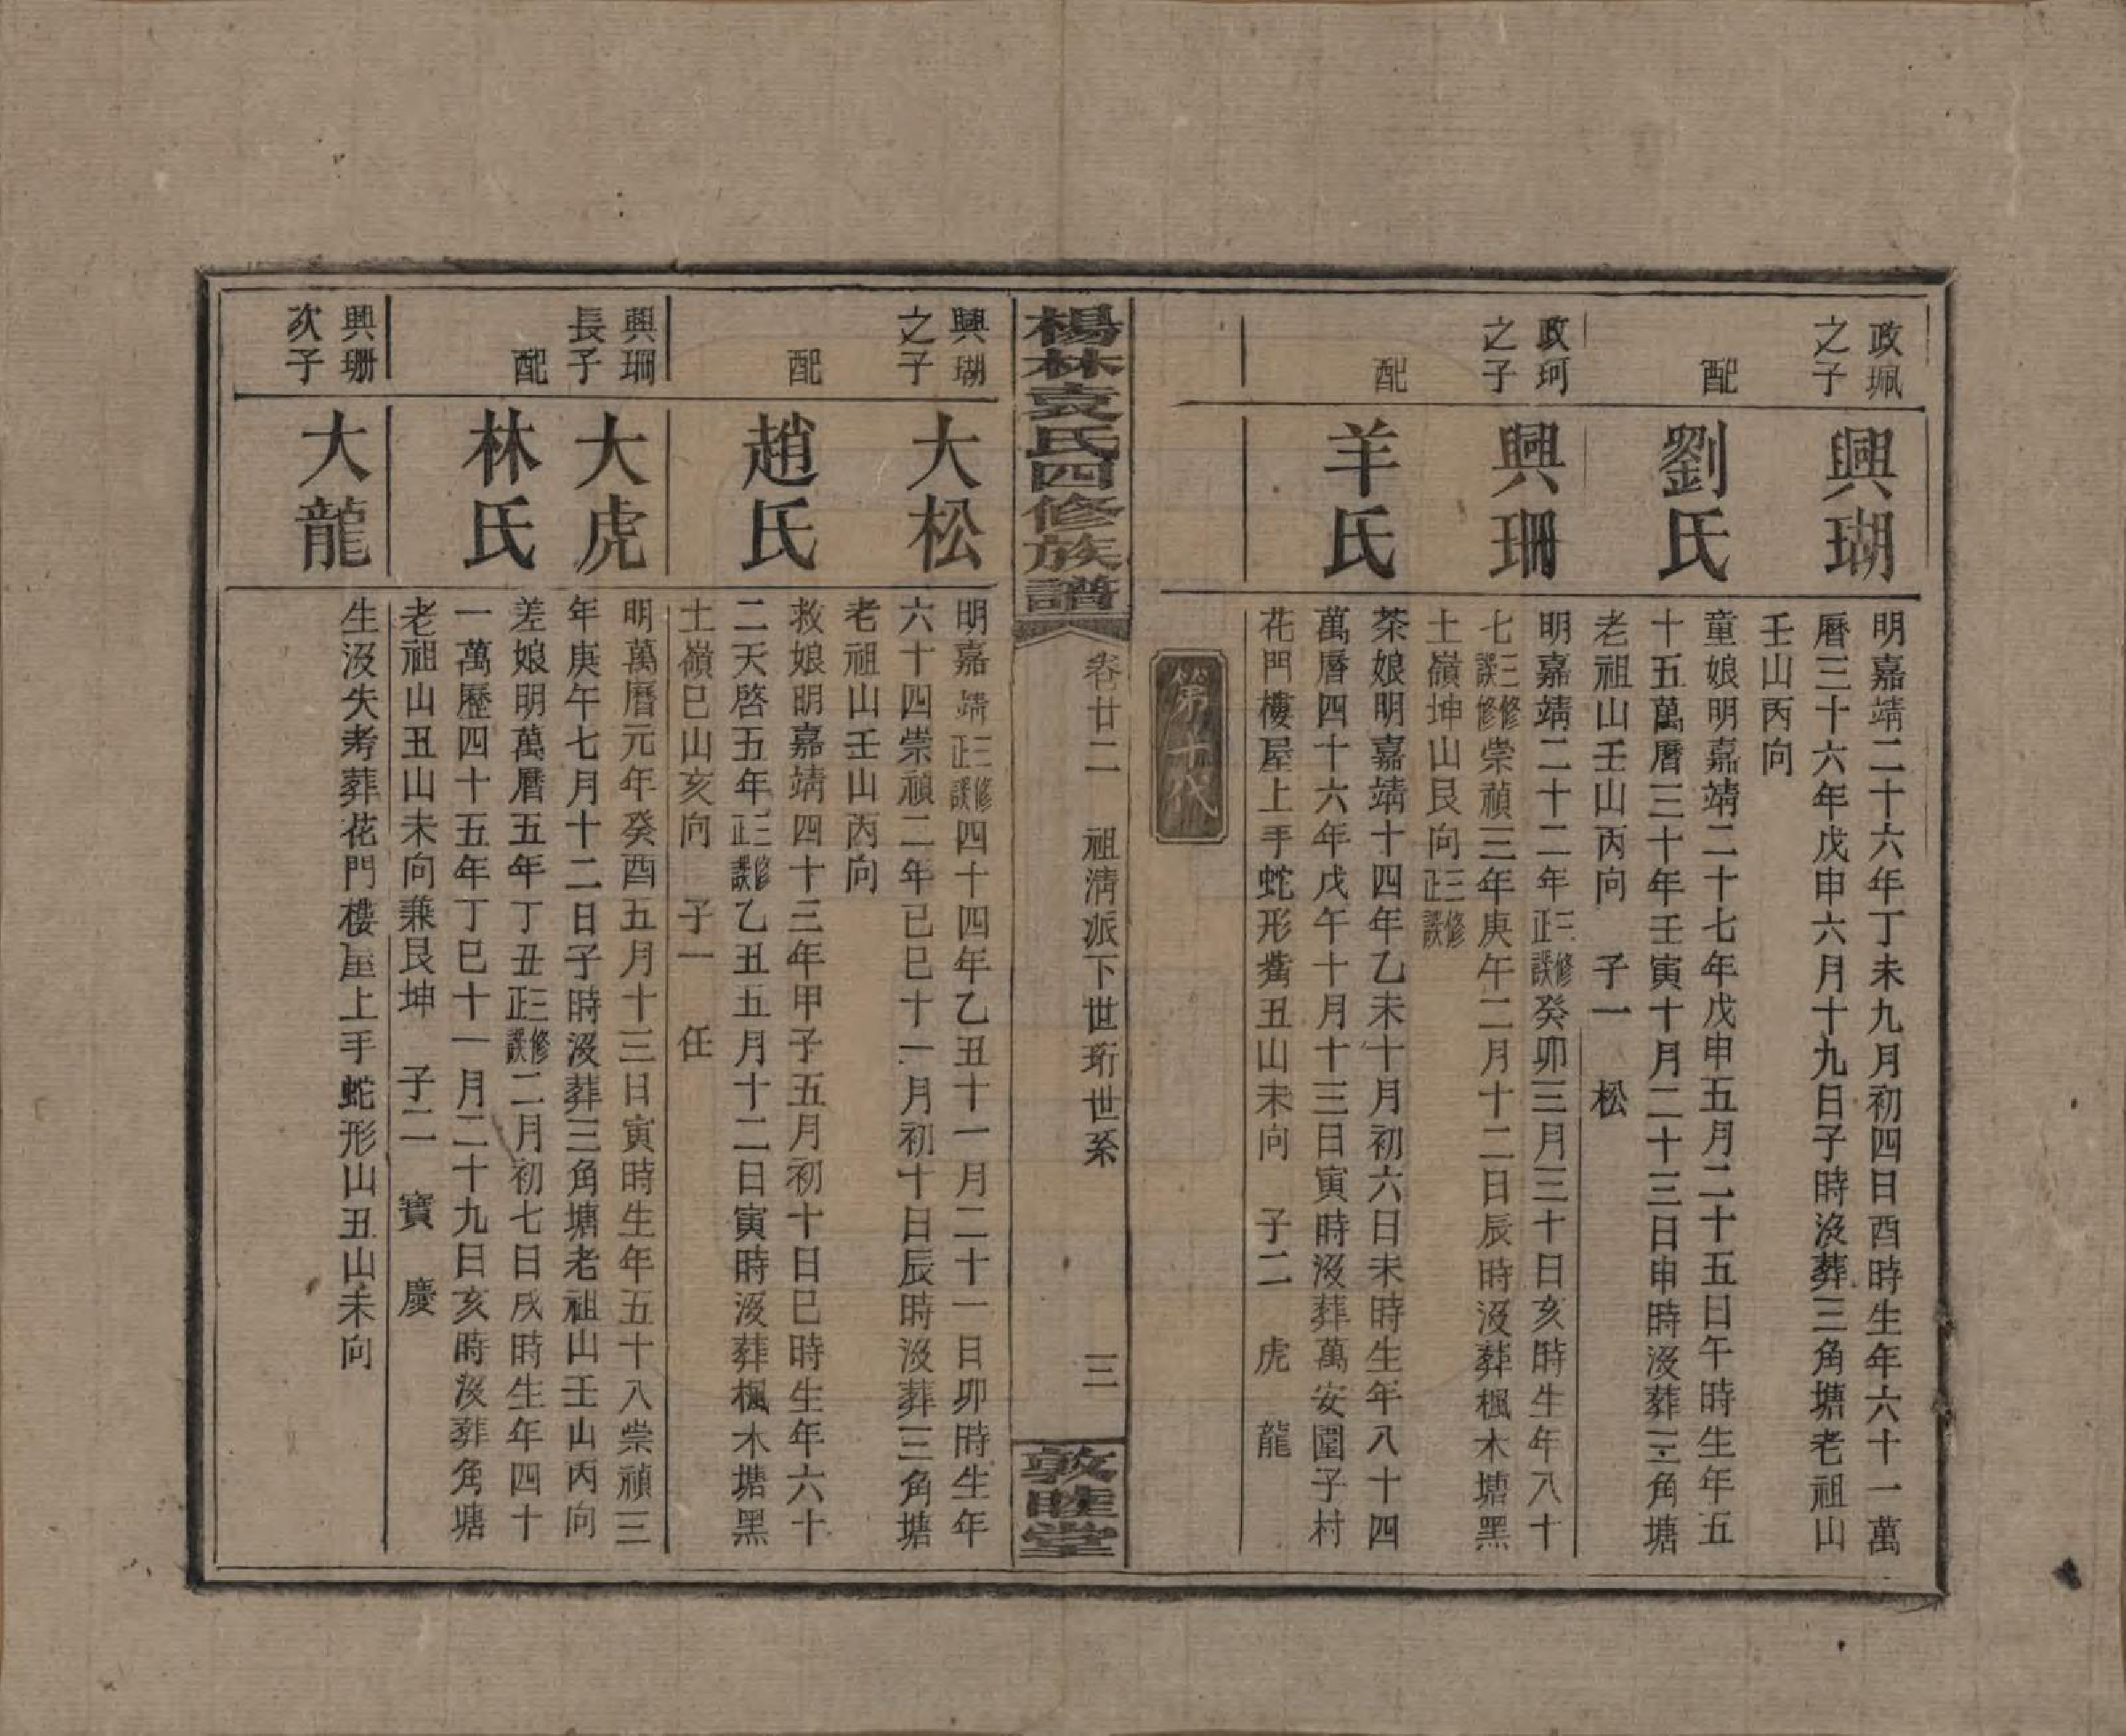 政珮
之子
興瑚
明嘉靖二十六年丁未九月初四日酉時生年六十一萬
曆三十六年戊申六月十九日子時沒葬三角塘老祖山
壬山丙向
配
劉氏
童娘明嘉靖二十七年戊申五月二十五日午時生年五
十五萬曆三十年壬寅十月二十三日申時沒葬三角塘
老祖山壬山丙向 子一 松
政珂
之子
興珊
明嘉靖二十二年三修正誤癸卯三月三十日亥時生年八十
七三修誤修崇禎三年庚午二月十二日辰時沒葬楓木塘黑
土嶺坤山艮向三修正誤
配
羊氏
茶娘明嘉靖十四年乙未十月初六日未時生年八十四
萬曆四十六年戊午十月十三日寅時沒葬萬安園子村
花門樓屋上手蛇形嘴丑山未向 子二 虎 龍
第十代
楊林袁氏四修族譜
卷廿二 祖淸派下世珩世系 三
敦睦堂
興瑚
之子
大松
明嘉靖三修正誤四十四年乙丑十一月二十一日卯時生年
六十四崇禎二年已巳十一月初十日辰時沒葬三角塘
老祖山壬山丙向
配
趙氏
救娘明嘉靖四十三年甲子五月初十日巳時生年六十
二天啓五年三修正誤乙丑五月十二日寅時沒葬楓木塘黑
土嶺巳山亥向 子一 任
興珊
長子
大虎
明萬曆元年癸酉五月十三日寅時生年五十八崇禎三
年庚午七月十二日子時沒葬三角塘老祖山壬山丙向
配
林氏
差娘明萬曆五年丁丑三修正誤二月初七日戌時生年四十
一萬歷四十五年丁巳十一月二十九日亥時沒葬角塘
老祖山丑山未向兼艮坤 子二 寶 慶
興珊
次子
大龍
生沒失考葬花門樓屋上手蛇形山丑山未向